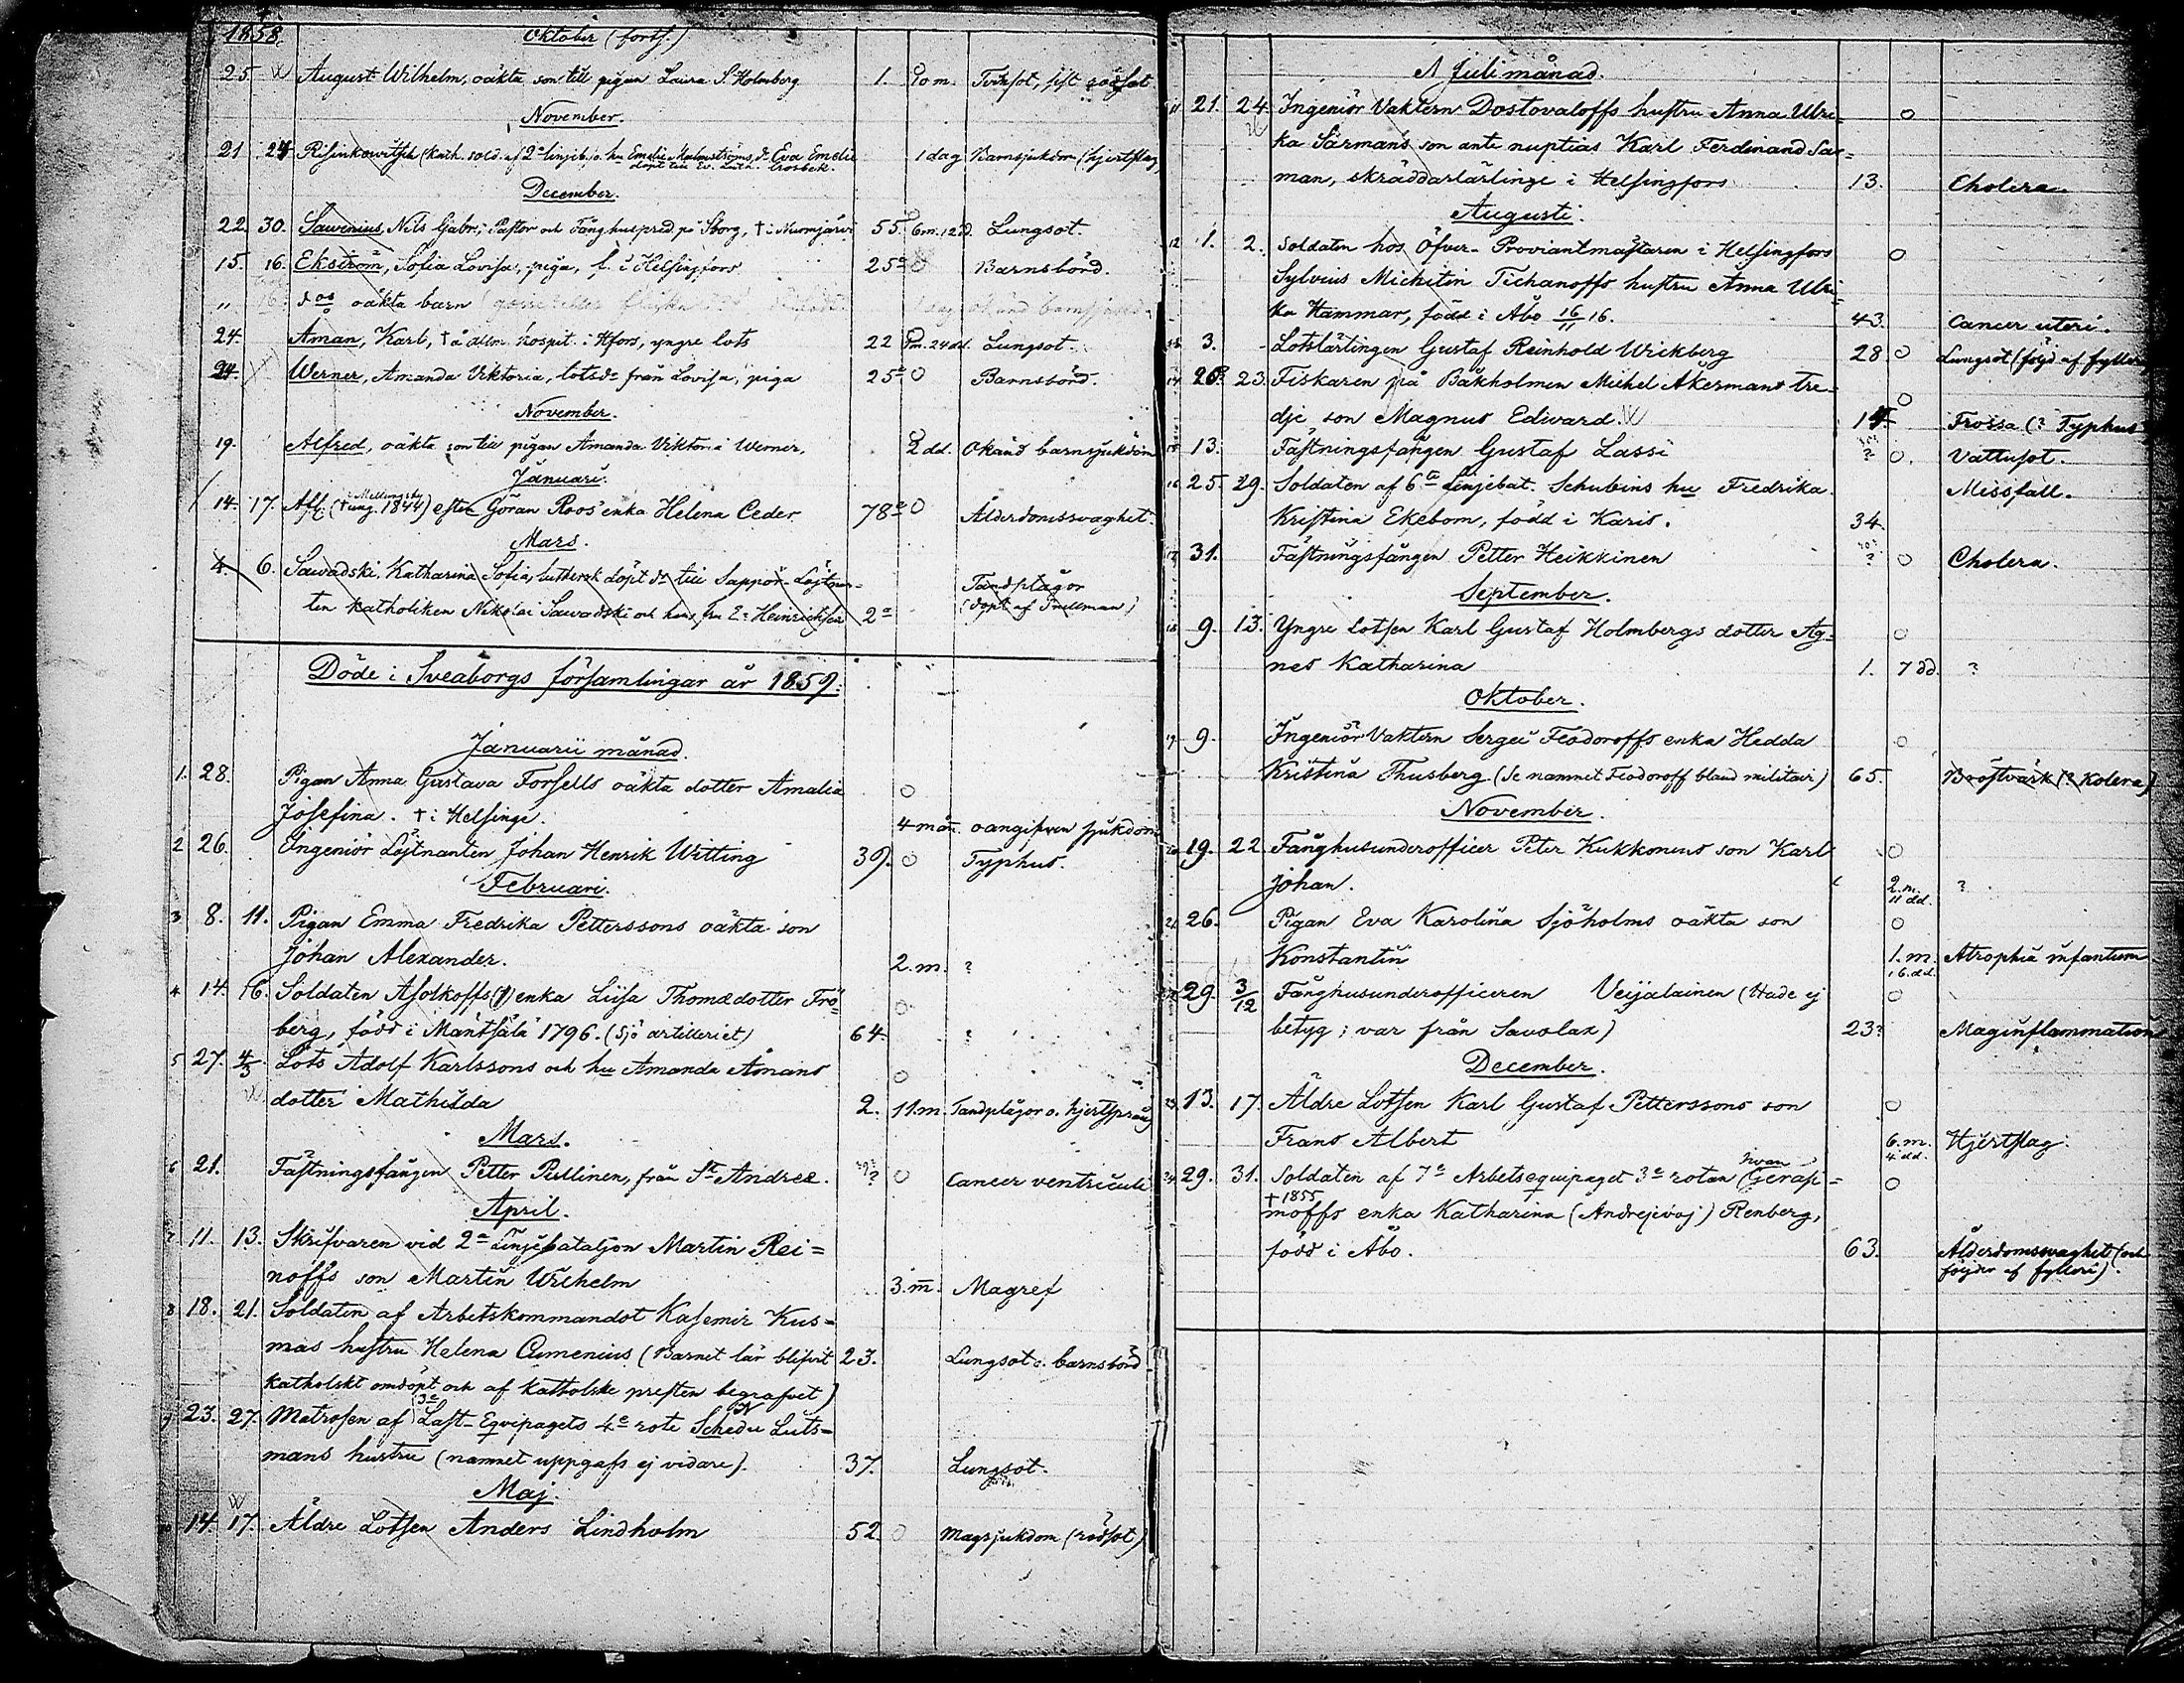 1858. Oktober (forts.)
25. W August Wilhelm, oäkta son till pigan Laura S. Holmberg 1. 10 m. Tvinsot, sist rödsot
November.
21 24 Risinkowitsch (kath. sold. af 2a linjeb. o. hu Emelie Malmströms, dr Eva Emelie 1 dag Barnsjukdom (hjertslag)
döpt till Ev. Luth. trosbek.
December.
22. 30. Sawenius, Nils Gabr., Pastor och Fånghuspred. på Sborg, † i Nurmijärvi 55. 6 m. 12 d. Lungsot.
15. 16. Ekström, Sofia Lovisa, piga, f. i Helsingfors 25 0 Barnsbörd.
„ 16. dos oäkta barn
24. Åman, Karl, † å allm. hospit. i Hfors, yngre lots 22 9m. 24 dd. Lungsot.
24. Werner, Amanda Viktoria, lotsdr från Lovisa, piga 25 0 Barnsbörd.
November.
19. Alfred, oäkta son till pigan Amanda Viktoria Werner, 2 dd. Okänd barnsjukdom
Januari.
14. 17. Afl. († aug. 1844) efter Göran Roos' enka Helena Ceder 78 0 Ålderdomssvaghet.
Mars.
4. 6. Sawadski, Katharina Sofia, luthersk döpt dr till Sappör-Löjtnan-
ten katholiken Nikolai Sawadski och hans fru E. Heinrichson 2 Tandplågor
(döpt af Snellman)
Döde i Sveaborgs församlingar år 1859.
Januarii månad.
1. 28. Pigan Anna Gustava Forsells oäkta dotter Amalia 0
Josefina. † i Helsinge. 4 mån. oangifven sjukdom
2 26. Ingeniör Löjtnanten Johan Henrik Witting 39. 0 Typhus.
Februari.
3 8. 11. Pigan Emma Fredrika Petterssons oäkta son
Johan Alexander. 2. m. ?
4 14. 16. Soldaten Asolkoffs (?) enka Liisa Thomædotter Frö- 0
berg, född i Mäntsälä 1796. (Sjö artilleriet) 64. ?
5 27. 4/3 Lots Adolf Karlssons och hu Amanda Åmans 0
dotter Mathilda 2. 11. m. Tandplågor o. hjertsprång
Mars.
6 21. Fästningsfången Petter Pullinen, från St Andreæ. ? 0 Cancer ventriculi
April.
7 11. 13. Skrifvaren vid 2a Linjebataljon Martin Rei=
noffs son Martin Wilhelm 3. m. Magref
8 18. 21. Soldaten af Arbetskommandot Kasemir Kus=
mas hustru Helena Cumenius (Barnet lär blifvit 23. Lungsot o. barnsbörd
katholskt omdöpt och af katholske presten begrafvet)
9 23. 27. Matrosen af 3e Last-Eqvipagets 4e rote Schedu Luts=
mans hustru (namnet uppgafs ej vidare). 37. Lungsot.
Maj.
14. 17. Äldre Lotsen Anders Lindholm 52. 0 Magsjukdom (rödsot)
Juli månad.
11 21. 24. Ingeniör Vaktern Dostovaloffs hustru Anna Ulri= 0
ka Särmans son ante nuptias Karl Ferdinand Sär=
man, skräddarlärlinge i Helsingfors 13. Cholera.
Augusti.
12 1. 2. Soldaten hos Öfver-Proviantmästaren i Helsingfors 0
Sylvius Michitin Tichanoffs hustru Anna Ulri=
ka Hammar, född i Åbo 16/11 16. 43. Cancer uteri.
13 3. Lotslärlingen Gustaf Reinhold Wickberg 28 0 Lungsot (följd af fylleri)
14 20. 23. Fiskaren på Båkholmen Michel Åkermans tre- 0
dje son Magnus Edward. W 14 Frossa (? Typhus
15 13. Fästningsfången Gustaf Lassi ? 0. Vattusot.
16 25. 29. Soldaten af 6te Linjebat. Schubins hu Fredrika Missfall.
Kristina Ekebom, född i Karis. 34.
17 31. Fästningsfången Petter Heikkinen ? 0 Cholera.
September.
18 9. 13. Yngre Lotsen Karl Gustaf Holmbergs dotter Ag- 0
nes Katharina 1. 7 dd. ?
Oktober.
19 9. Ingeniör Vaktern Sergei Feodoroffs enka Hedda 0
Kristina Thusberg (Se nammet Feodoroff bland militair) 65. Bröstvärk (? Kolera)
November.
20 19. 22. Fånghusunderofficer Peter Kukkonens son Karl 0
Johan. 2. m. 11 dd. ?
21 26. Pigan Eva Karolina Sjöholms oäkta son 0
Konstantin 1. m. 16. dd. Atrophia infantum
22 29. 3/12 Fånghusunderofficeren Veijalainen (Hade ej 0
betyg; var från Savolax) 23? Maginflammation
December.
23 13. 17. Äldre Lotsen Karl Gustaf Petterssons son 0
Frans Albert 6. m. 4 dd. Hjertslag.
24 29. 31. Soldaten af 7e Arbetseqvipaget 3e rotan Ivan Gerasi= 0
† 1855
moffs enka Katharina (Andrejevaj) Renberg,
född i Åbo. 63. Ålderdomssvaghet (och
följder af fylleri).